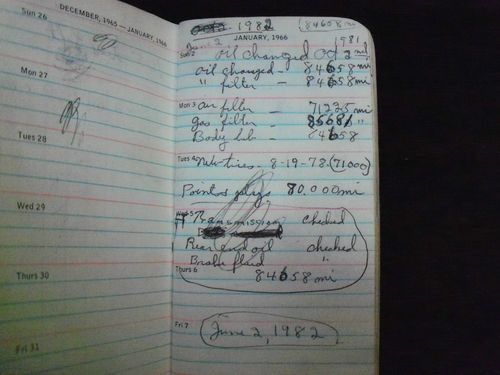 DECEMBER, 1965 — JANUARY, 1966
Sun 26
Mon 27
Tues 28
Wed 29
Thurs 30
Fri 31
1982 (84658 mi
June 2 1981
JANUARY, 1966
Sun 2 oil changed Oct 2 nd
oil changed - 84658 mi
" filter - 84658 mi
Mon 3 air filter - 71225 mi
gas filter - "
Body lub - 84658
Tues 4 New tires - 8-19-78 (71000)
Points plugs 80.000 mi
Wed 5 Transmission checked
Rear end oil checked
Brake fluid "
Thurs 6 84658 mi
Fri 7
June 2, 1982